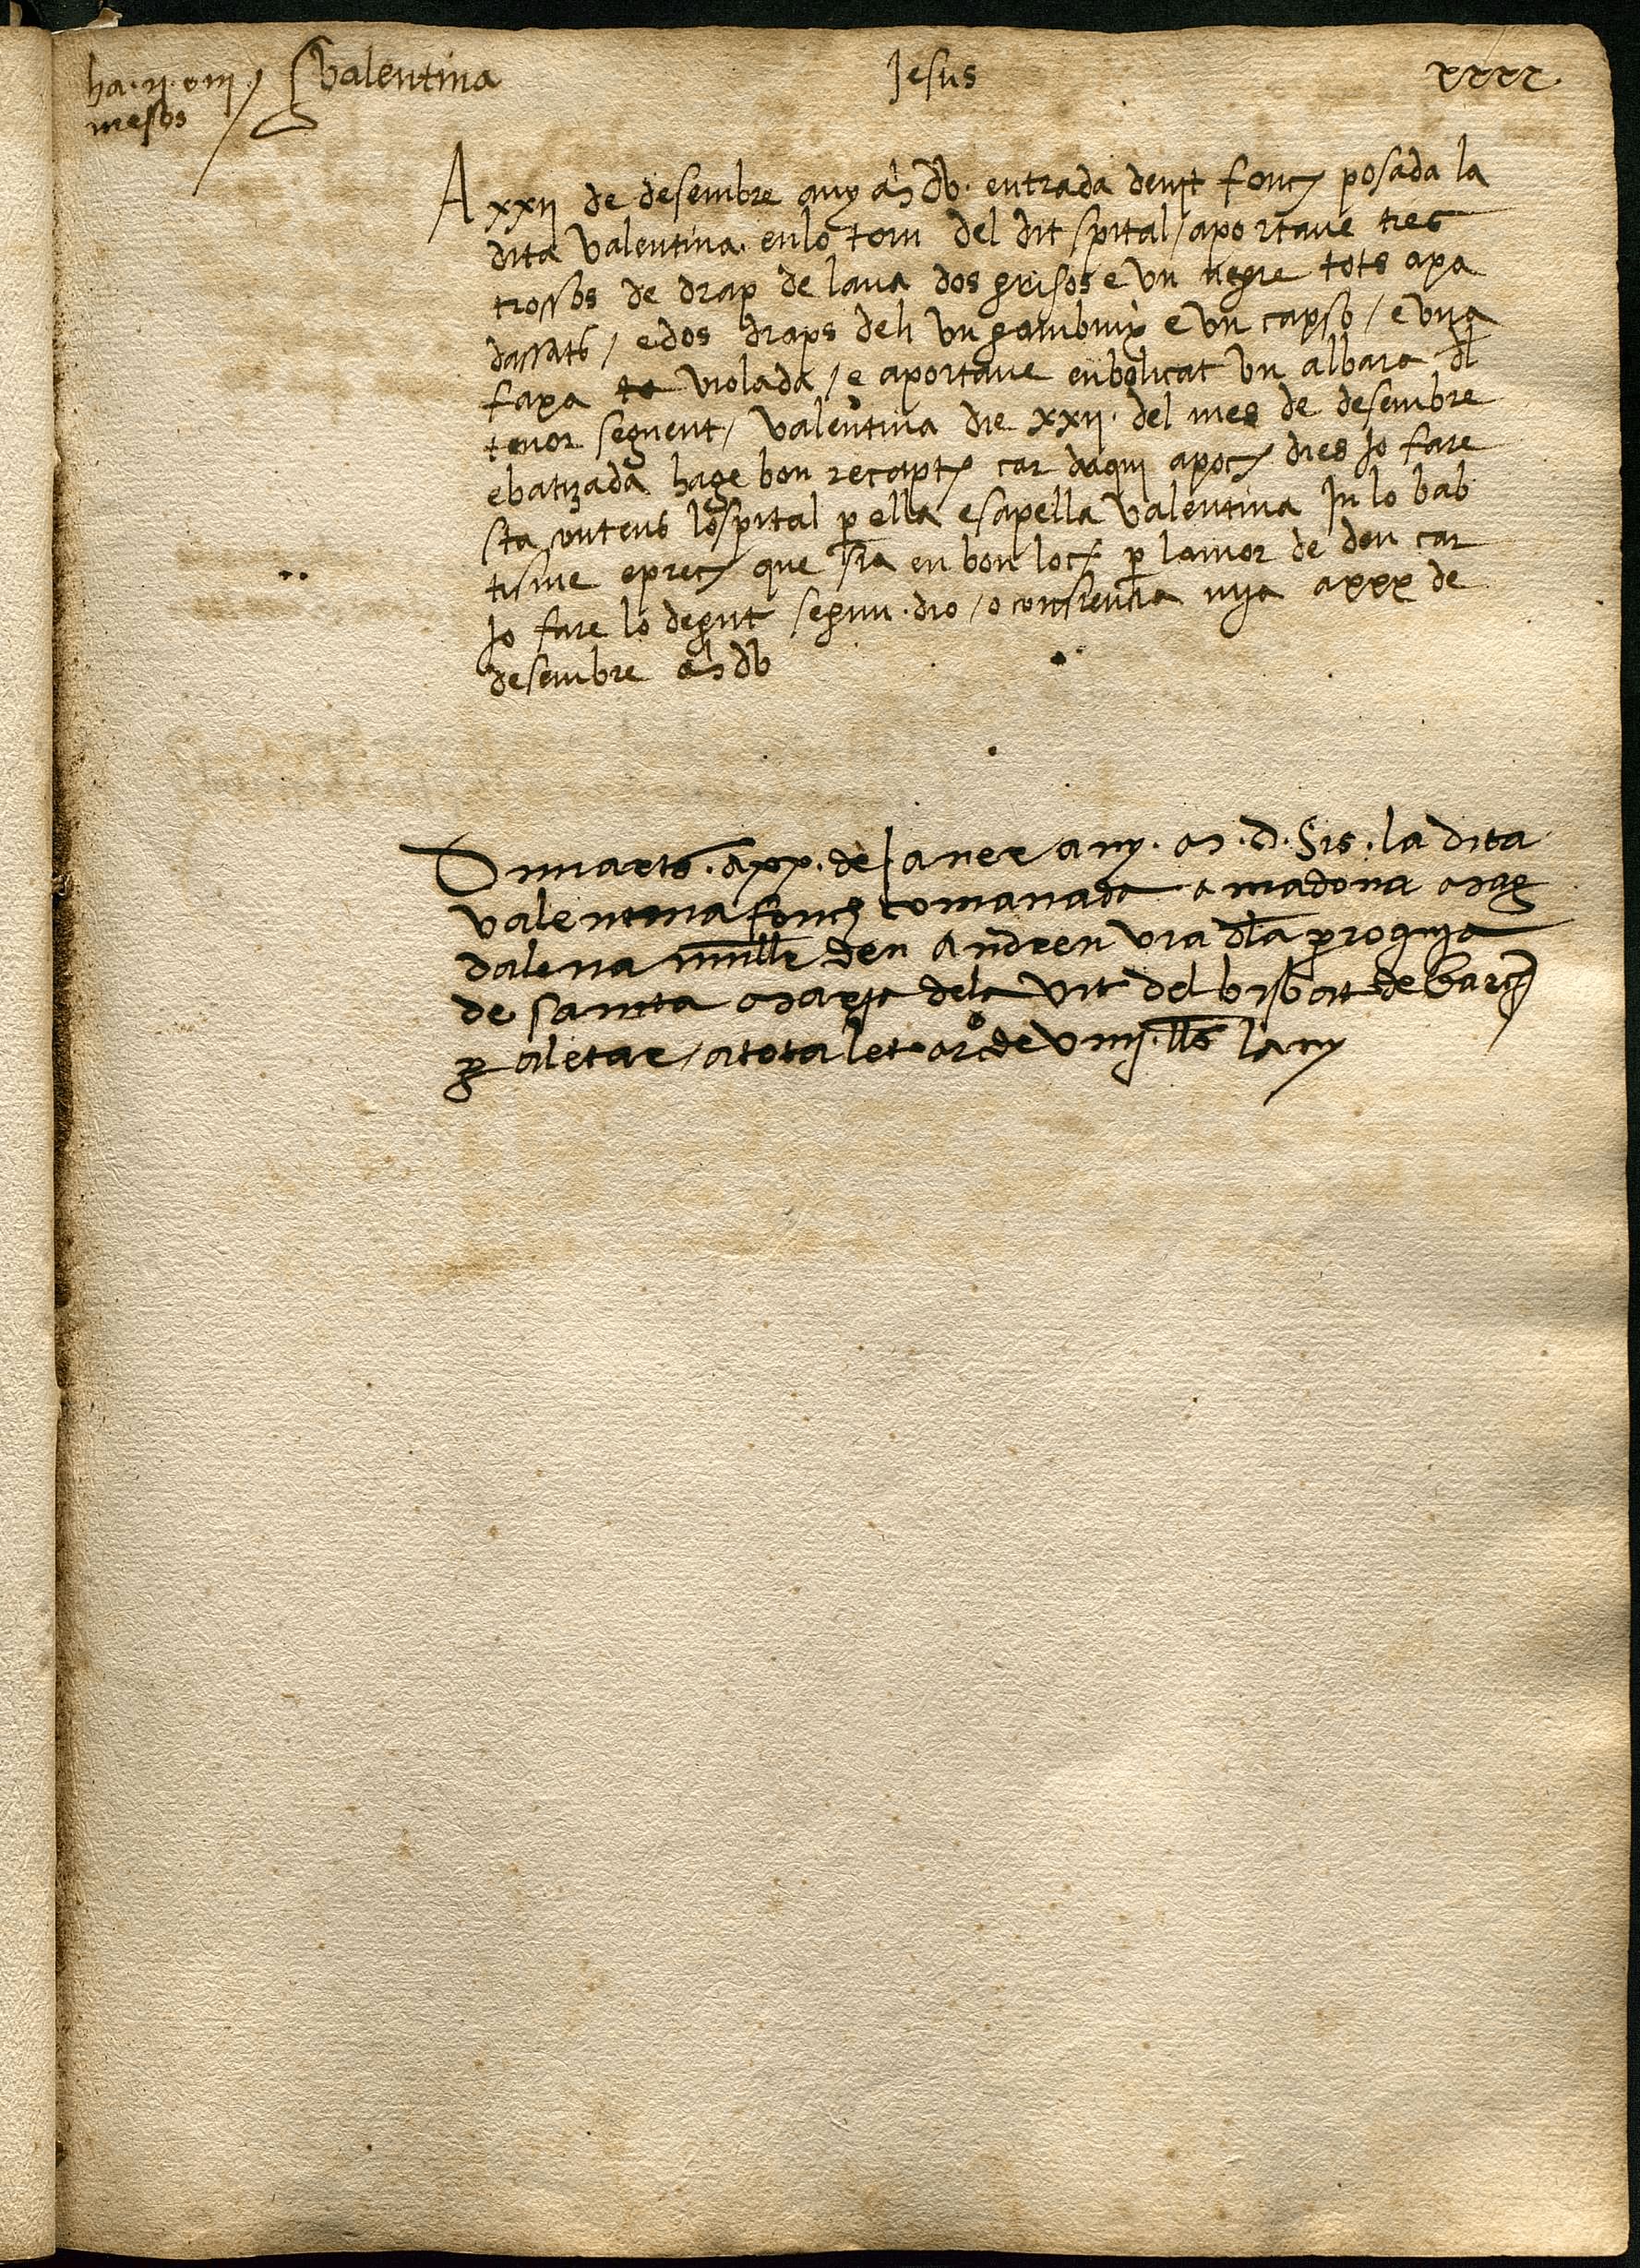 ha·ii·o iii·/ Valentina Jesus xxxx
mesos
A xxii de desembre any M db· entrada de nit fonch posada la
dita Valentina· en lo torn del dit spital / aportave tres
trossos de drap de lana dos grisos e un negre tots apa
dassats / e dos draps de li un gambuix e un capso / e una
faxa violada / e aportave enbolicat un albara dl
tenor seguent / Valentina die xxii· del mes de desembre
e batizada hage bon recapte car daqui a poch dies Jo fare
sta content lospital p ella e sapella Valentina Jn lo bab
tisme e prech que sia en bon loch p lamor de deu car
Jo fare lo degut segun· dio / o consiencia mja a xxx de
desembre M db
Dimarts· a xx· de Janer any· M·d· Sis· la dita
Valentina fonch comanada a madona Mag
dalena mull den Andreu vra dla parroquja
de Santa Marja dela Vit del bisbat de barc
p aletar / a tota let a for de viiij· lls lany